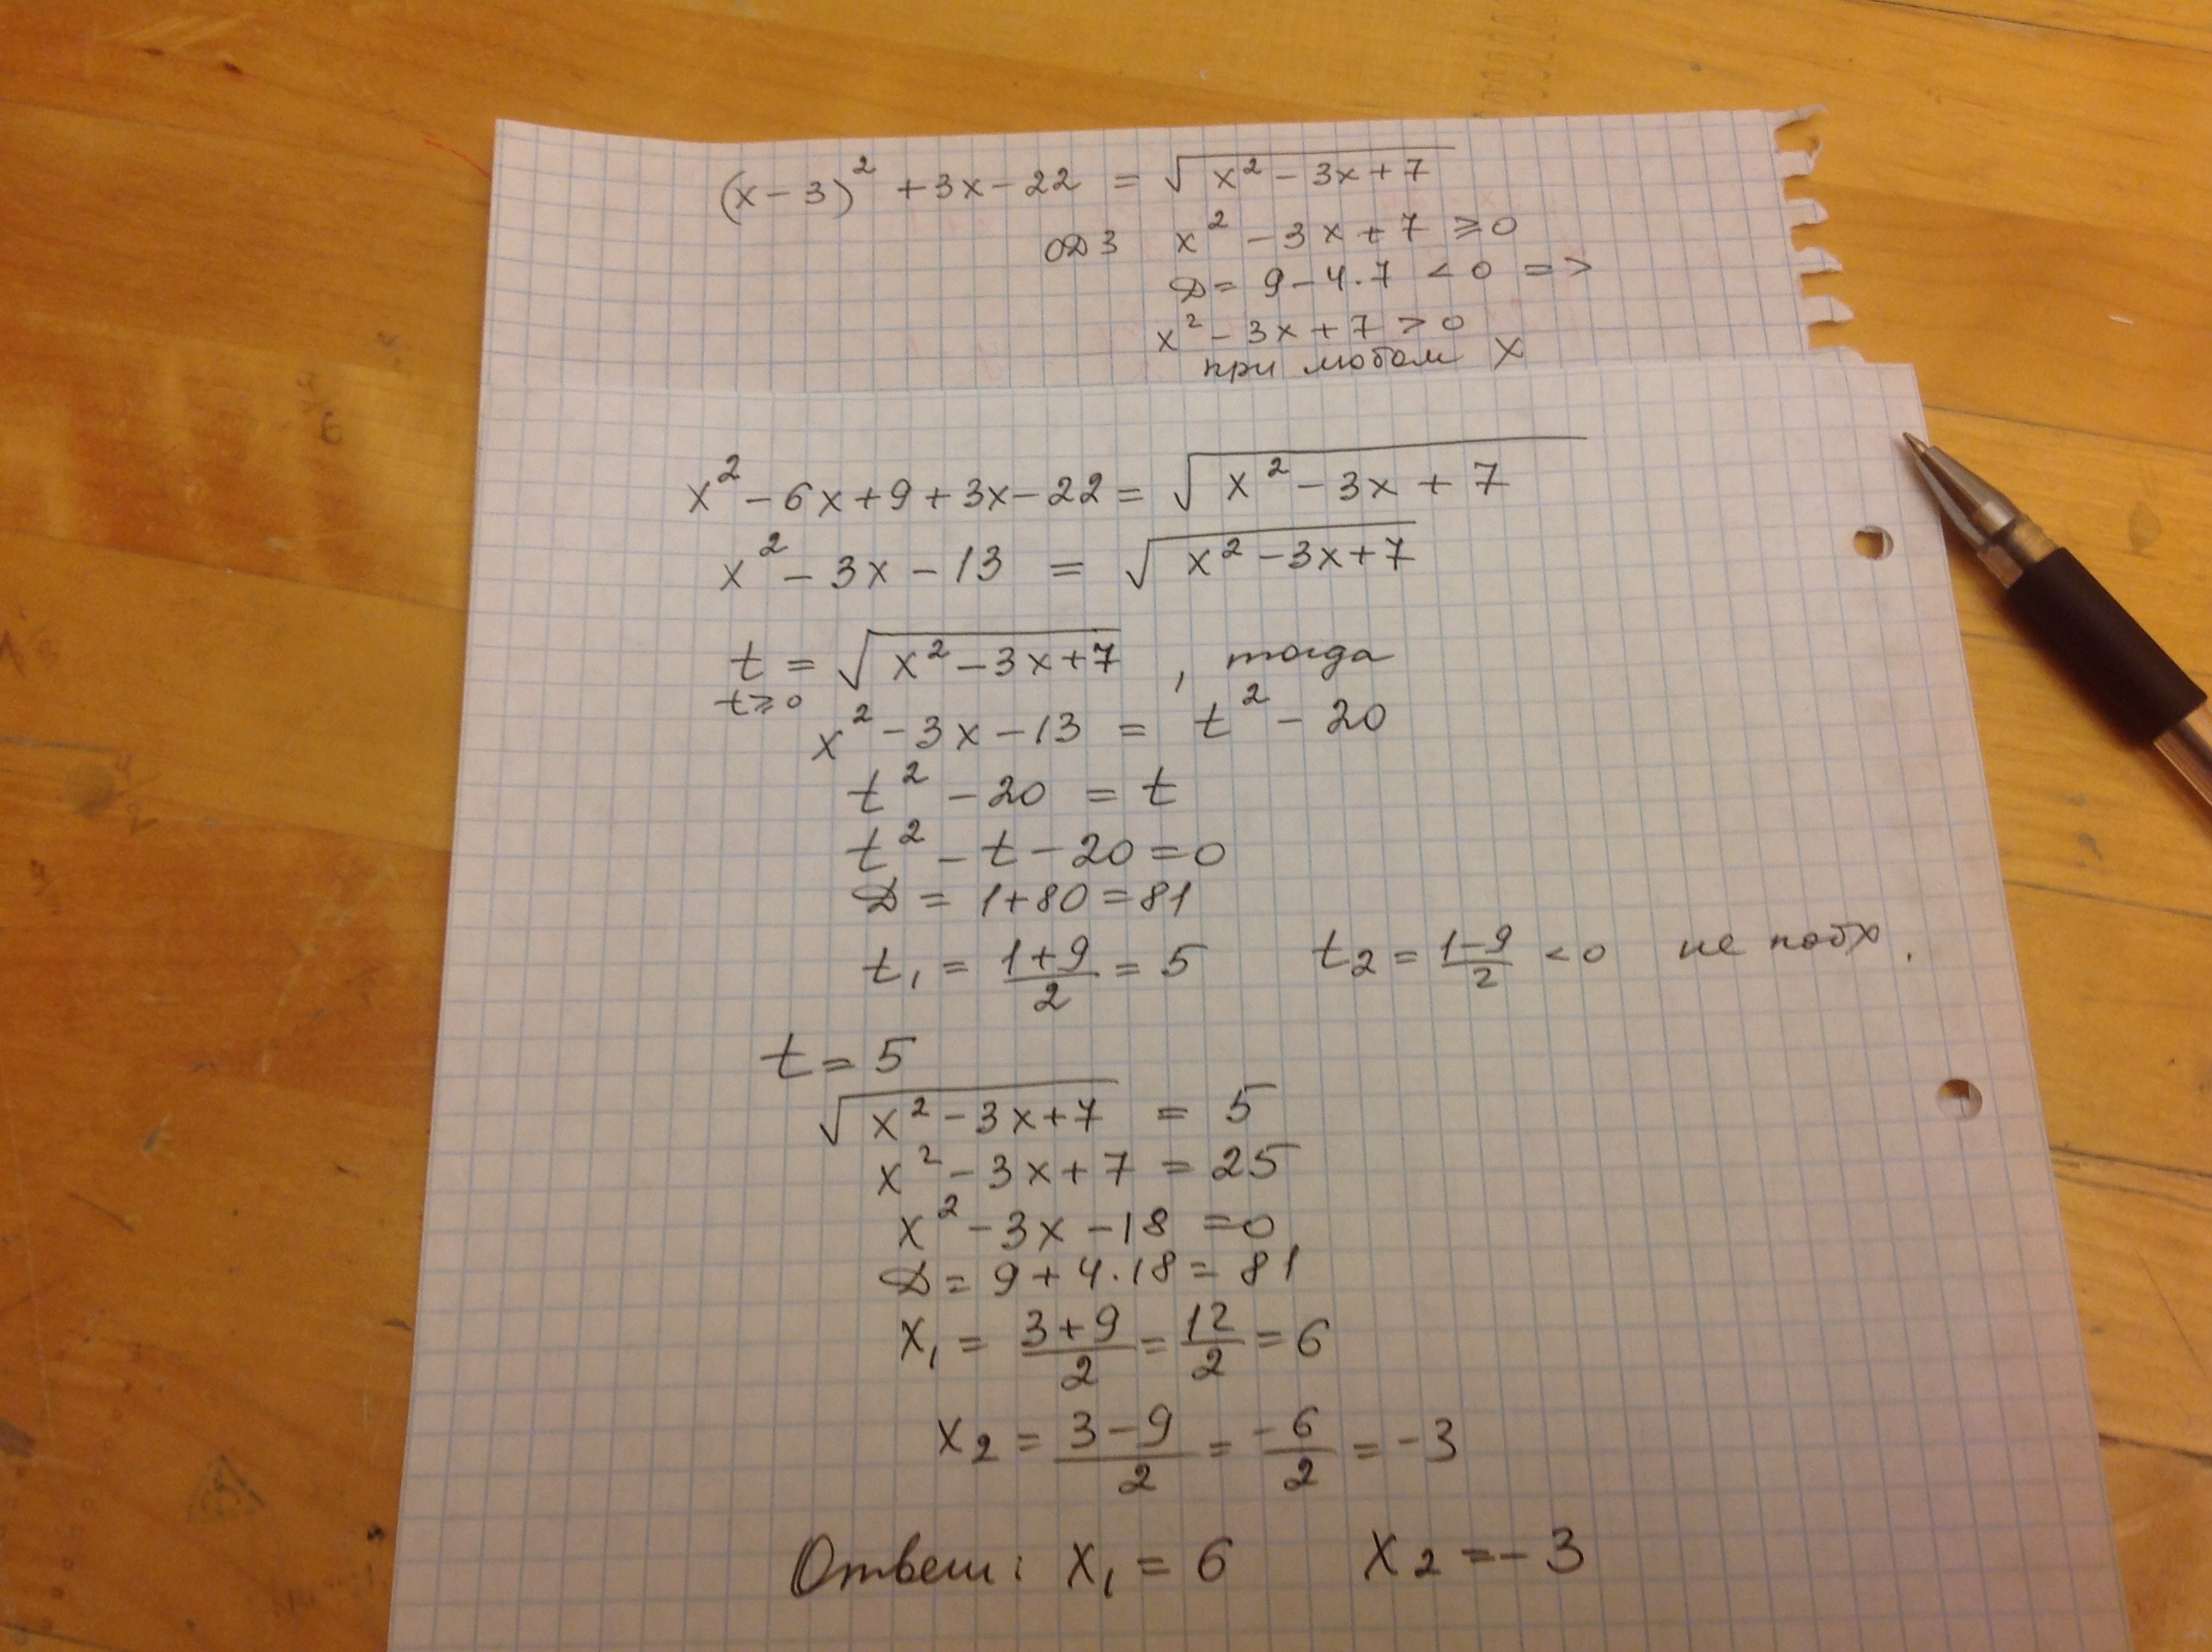 (x-3)² + 3x - 22 = √(x² - 3x + 7)
ОДЗ x² - 3x + 7 ≥ 0
D = 9 - 4·7 < 0 =>
x² - 3x + 7 > 0
при любом x
x² - 6x + 9 + 3x - 22 = √(x² - 3x + 7)
x² - 3x - 13 = √(x² - 3x + 7)
t = √(x² - 3x + 7) , тогда
t ≥ 0
x² - 3x - 13 = t² - 20
t² - 20 = t
t² - t - 20 = 0
D = 1 + 80 = 81
t₁ = (1+9)/2 = 5 t₂ = (1-9)/2 < 0 не подх.
t = 5
√(x² - 3x + 7) = 5
x² - 3x + 7 = 25
x² - 3x - 18 = 0
D = 9 + 4·18 = 81
x₁ = (3+9)/2 = 12/2 = 6
x₂ = (3-9)/2 = -6/2 = -3
Ответ: x₁ = 6 x₂ = -3